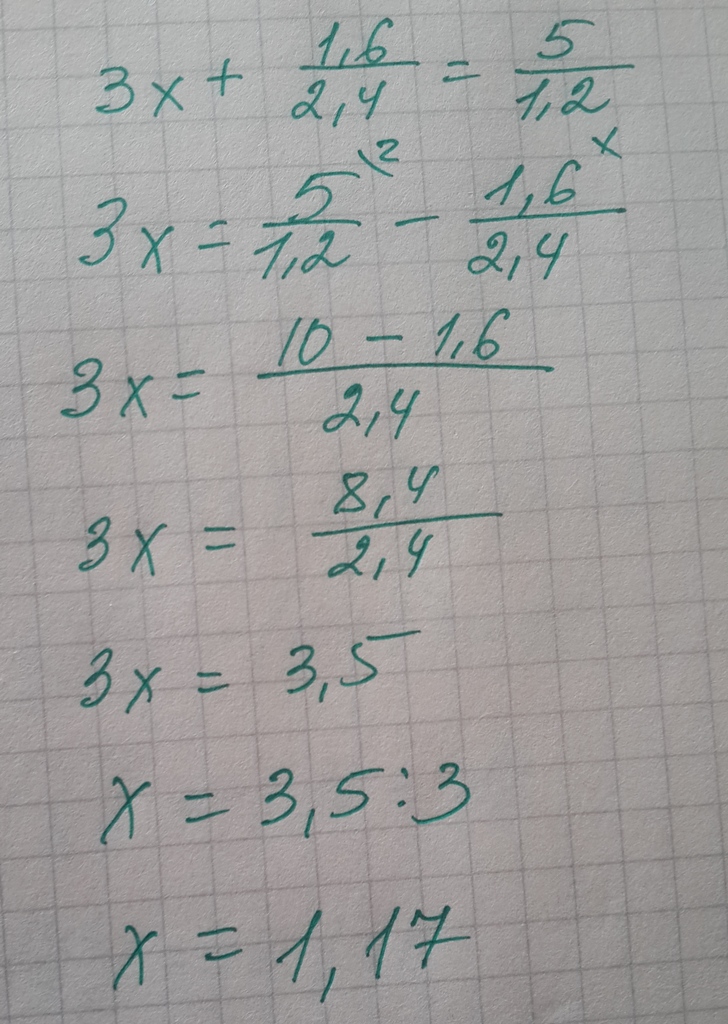 3x + 1,6/2,4 = 5/1,2
3x = 5\2/1,2 - 1,6/2,4
3x = 10 - 1,6/2,4
3x = 8,4/2,4
3x = 3,5
x = 3,5 : 3
x = 1,17